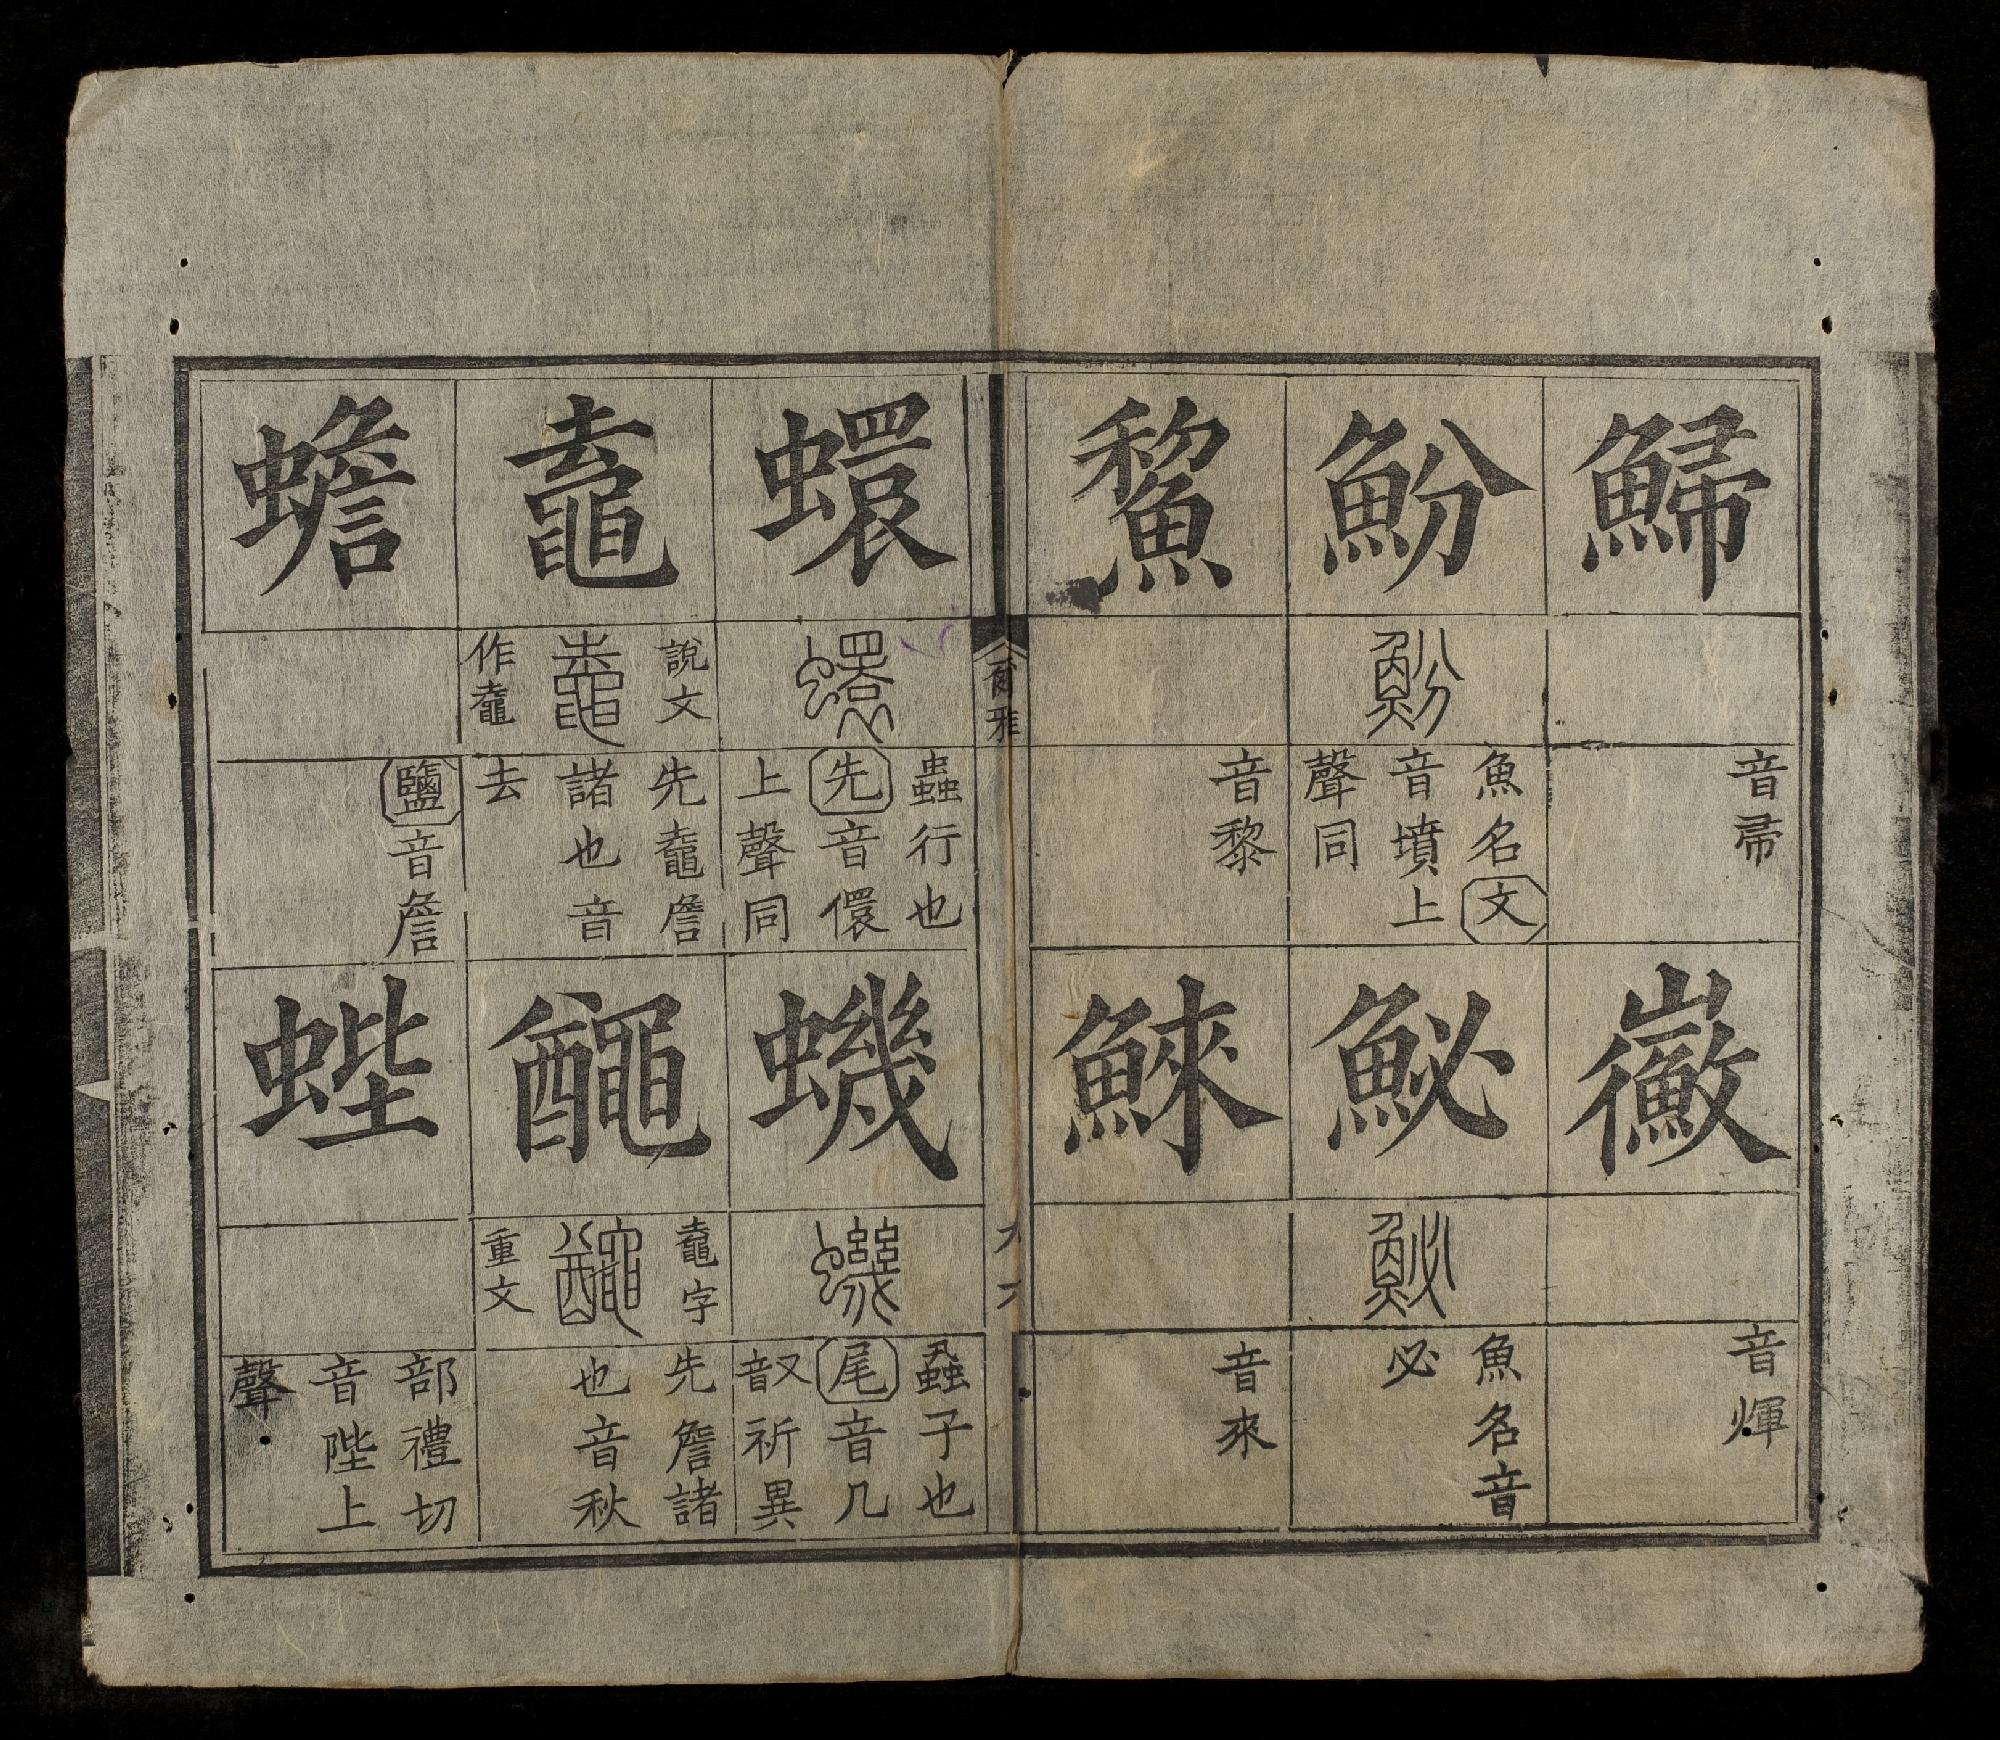 鯞
音帚
鰴
音煇
魵
魵
魚名文
音墳上
聲同
鮅
鮅
魚名音
必
鯬
音黎
鯠
音來
爾雅
蠉
蠉
蟲行也
先音儇
上聲同
蟣
蟣
蝨子也
尾音几
又音祈異
鼁
說文
鼀
作鼀
先鼀詹
諸也音
去
𪓰
鼀字
𪓰
重文
先詹諸
也音秋
蟾
鹽音詹
蜌
部禮切
音陛上
聲